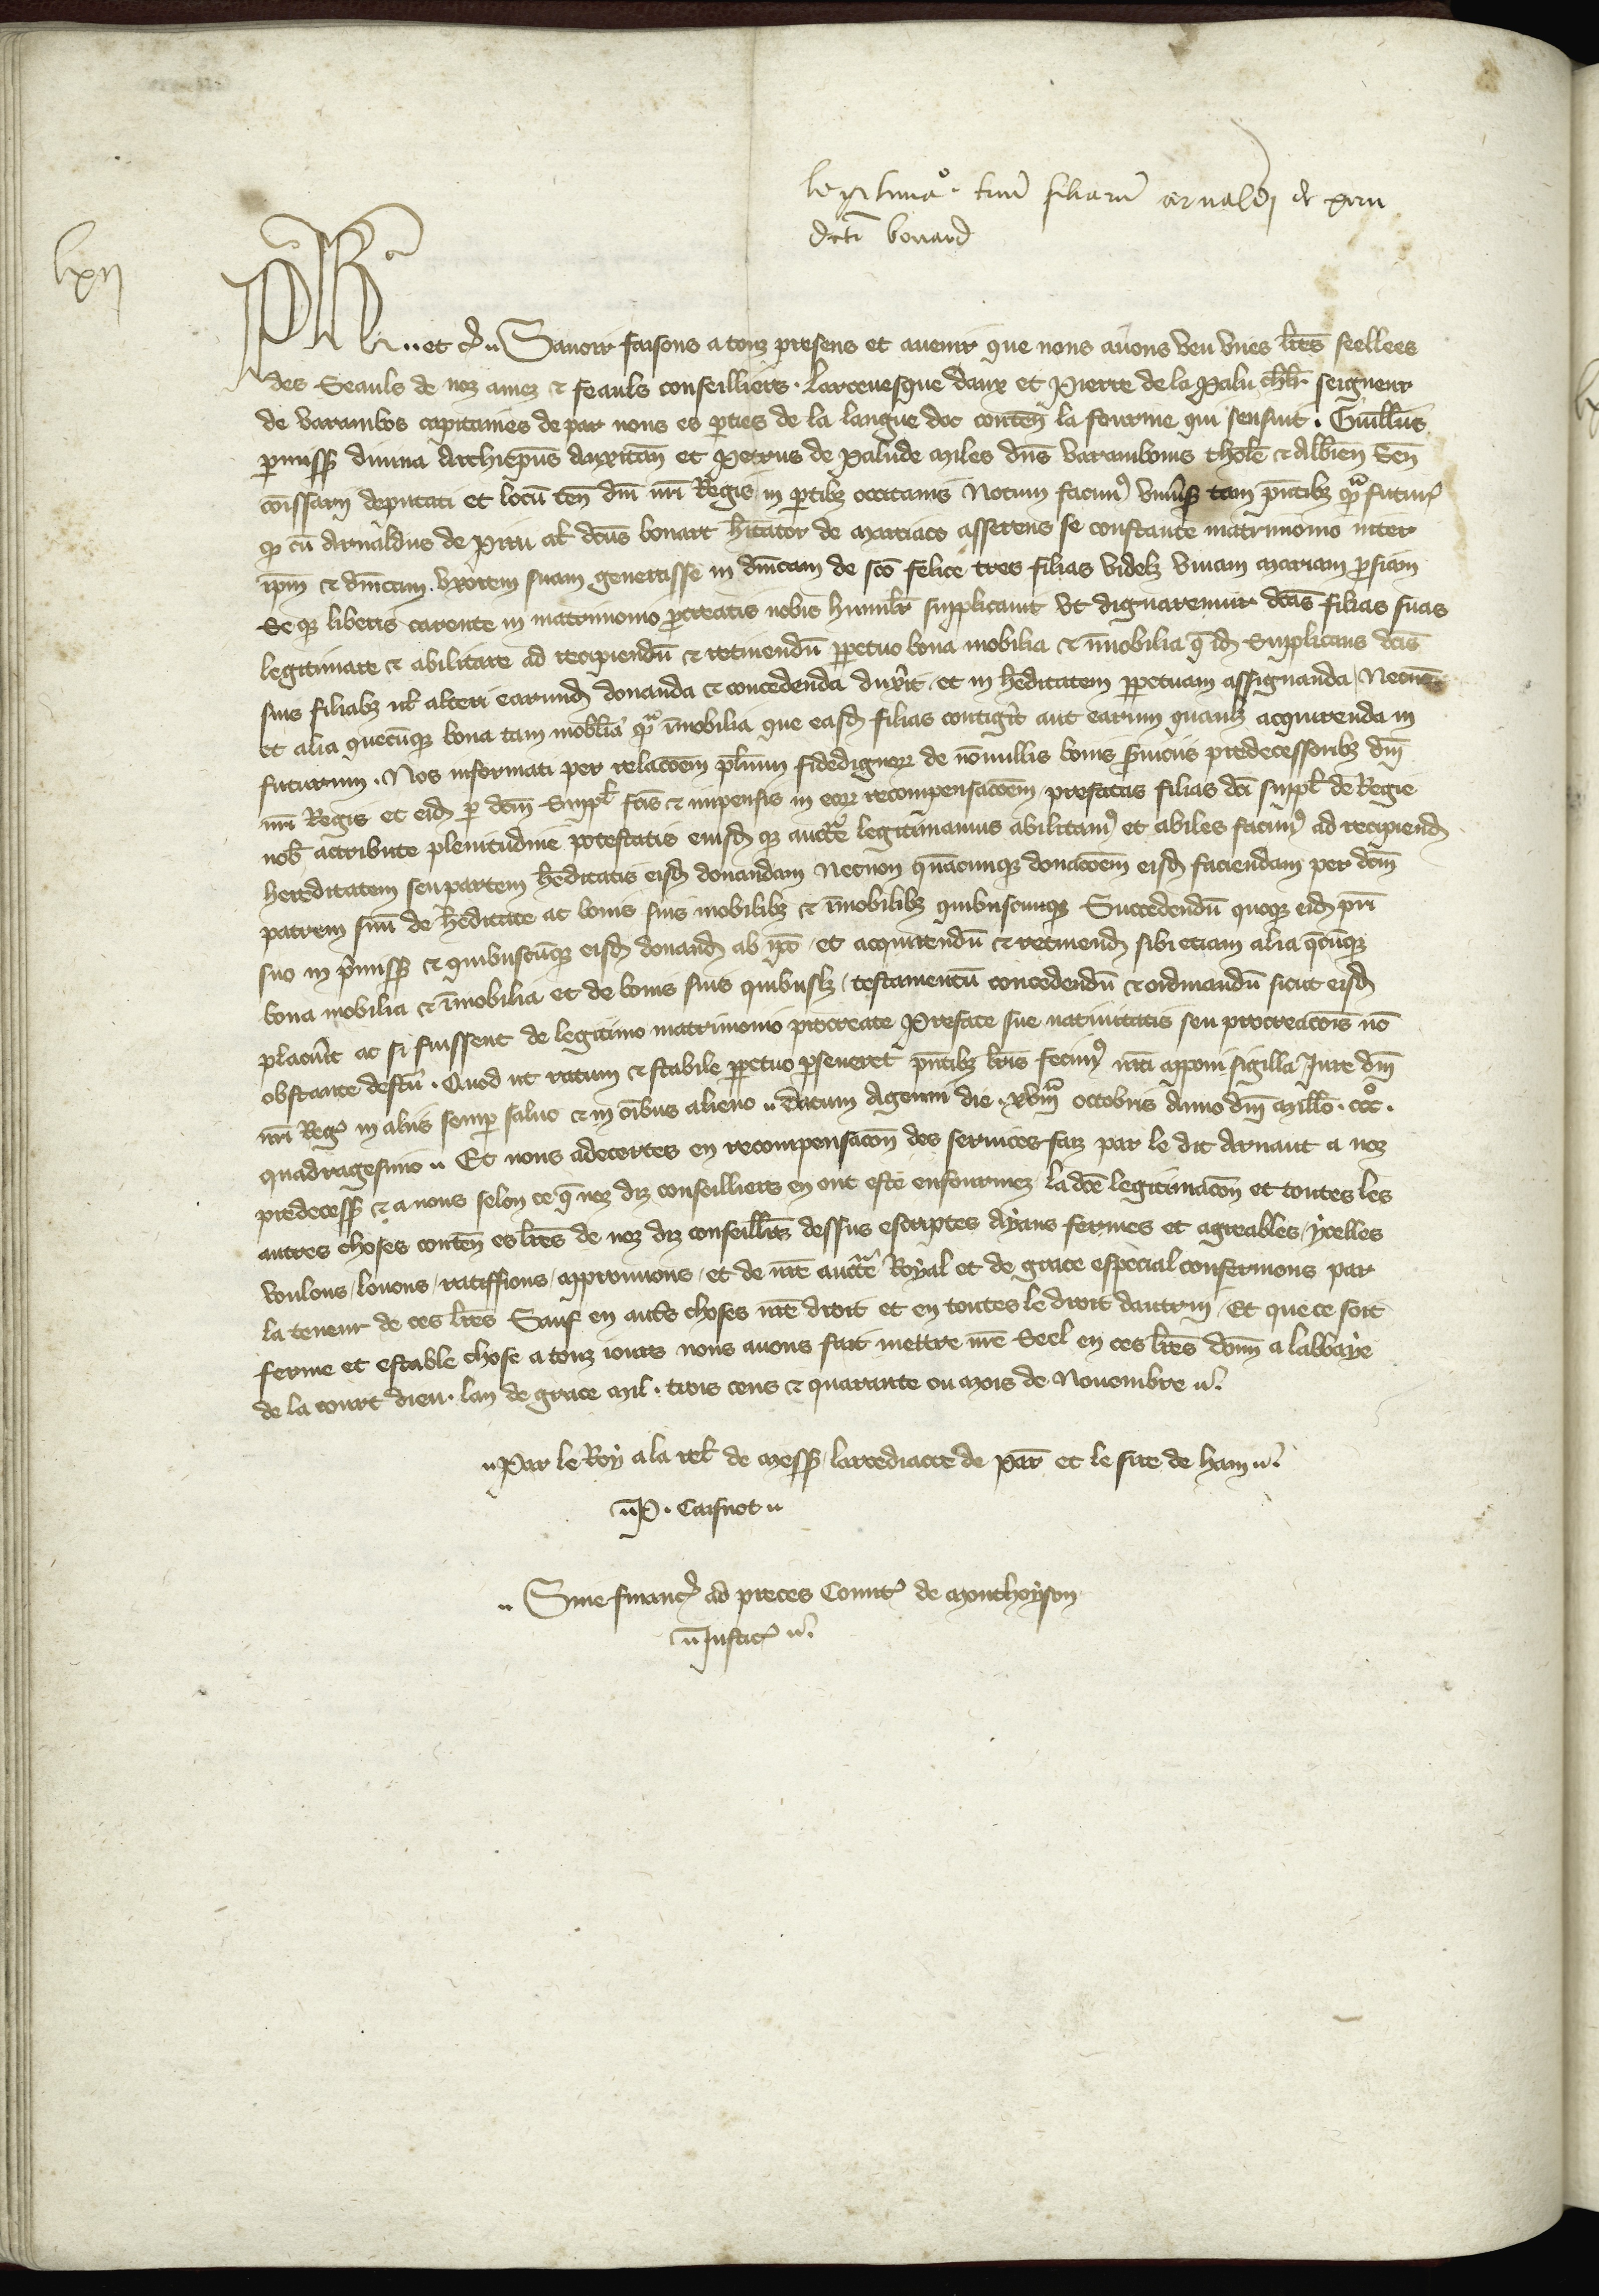 legitimac͞o triũ filiarũ arnaldi de piru
dicti bonard
lxij
Ph̃e .. et c̃ .. Savoir faisons a touz presens et avenir que nous avons veu unes lr̃es seellees
des Seauls de noz amez ⁊ feauls conseilliers . larcevesque daux et Pierre de la Palu chl̃r seigneur
de varambos capitaines de par nous es p̱ties de la langue doc conteñ la fourme qui sensuit . Guill̃us
p̱miss̃ divina Archiep̃us Auxitañ et Petrus de Palude Miles dñs Varambonis thol̃e ⁊ Albieñ Señ
com̃issarij deputati et locũ teñ dñi nr̃i Regis in p̱tibȝ occitanis Notum facimꝰ univ̾s̃ tam p̃ntibȝ qᵃ̃ futur̃
qꝫ cũ Arnaldus de Piru al̃ dc̃us bonart h̃itator de Marciaco asserens se constante matrimonio inter
ip̃m ⁊ dm̃cam . uxorem suam generasse in dm̃cam de sc̃o felice tres filias videlȝ vivam mariam p̱siam
Se qꝫ liberis carente in matrimonio p̱creatis nobis humil̃r supplicavit ut dignaremur dc̃as filias suas
legitimare ⁊ abilitare ad recipiendũ ⁊ retinendũ pp̱etuo bona mobilia ⁊ im̃obilia q̃ id̃ Supplicans dc̃is
suis filiabȝ ul̃ alteri earund̃ donanda ⁊ concedenda dux̾it et in h̾editatem pp̱etuam assignanda / Necnõ
et alia quecũqꝫ bona tam mobilia qᵃ̃ im̃obilia que easd̃ filias contig̾it aut earum quamlȝ acquirenda in
futurum . Nos informati per relac̃oem pl̃rium fidedignoꝝ de nõnullis bonis s̾viciis predecessoribȝ dñi
nr̃i Regis et eid̃ p̱ dc̃m Suppl̃ fc̃is ⁊ impensis in eoꝝ recompensac̃oem prefatas filias dc̃i suppl̃ de Regie
nob̃ attribute plenitudine potestatis eiusd̃ qꝫ auct̃e legitimamus abilitamꝰ et abiles facimꝰ ad recipiend̃
hereditatem seu partem h̾editatis eisd̃ donandam Necnon quãcunqꝫ donac̃oem eisd̃ faciendam per dc̃m
patrem suũ de h̾editate ac bonis suis mobilibȝ ⁊ im̃obilibȝ quibuscunqꝫ Succedendũ quoqꝫ eid̃ pr̃i
suo in p̾miss̃ ⁊ quibuscũqꝫ eisd̃ donand̃ ab ip̃o / et acquirendũ ⁊ retinend̃ sibi etiam alia q̃cũqꝫ
bona mobilia ⁊ im̃obilia et de bonis suis quibuslȝ / testamentũ concedendũ ⁊ ordinandũ sicut eisd̃
placu̾it ac si fuissent de legitimo matrimonio procreate Preface sue nativitatis seu procreac̃ois nõ
obstante defc̃u . Quod ut ratum ⁊ stabile pp̱etuo p̱severet p̃ntibȝ lr̃is fecimꝰ nr̃a apponi sigilla Iure dñi
nr̃i Reg̃ in aliis semp̱ salvo ⁊ in oĩbus alieno .. Datum Agenni die . xviijᵃ̃ octobris Anno dñi Mill̃o . ccc̊ .
quadragesimo .. Et nous adecertes en recompensac̃on des services faiz par le dit Arnaut a noz
predecess̃ ⁊ a nous selon ce q̃ noz diz conseilliers en ont este enfourmez la dc̃e legitimac̃on et toutes les
autres choses conteñ es lr̃es de noz diz conseill̃rs dessus escriptes Ayans fermes et agreables / ycelles
voulons / louons / ratiffions / approuvons / et de nr̃e auct̃e Royal et de grace especial confermons par
la teneur de ces lr̃es Sauf en aut̾s choses nr̃e droit et en toutes le droit dautruy / Et que ce soit
ferme et estable chose a touz iours nous avons fait mettre nr̃e Seel en ces lr̃es doñn a labbaye
de la court dieu . lan de grace Mil . trois cens ⁊ quarante ou Mois de Novembre ..
.. Par le Roy a la rel̃ de Mess̃ larcediacre de Par̃ et le sire de ham ..
.. P . Caisnot ..
.. Sine financ̃ ad preces Comit̃ de Monthoyson
.. Justic̃ ..